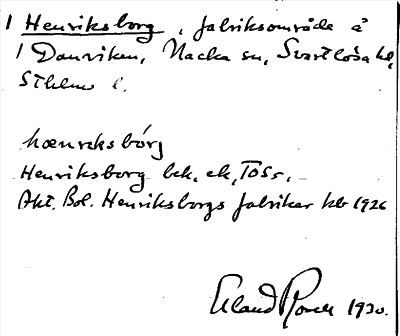 1 Henriksborg, fabriksområde å
1 Danviken, Nacka sn, Svartlösa hd,
Sthlms l.
hænrɪksbórj
Henriksborg bek. ek, TOSr.
Akt. Bol. Henriksborgs fabriker kb 1926
Erland Rosell 1930.